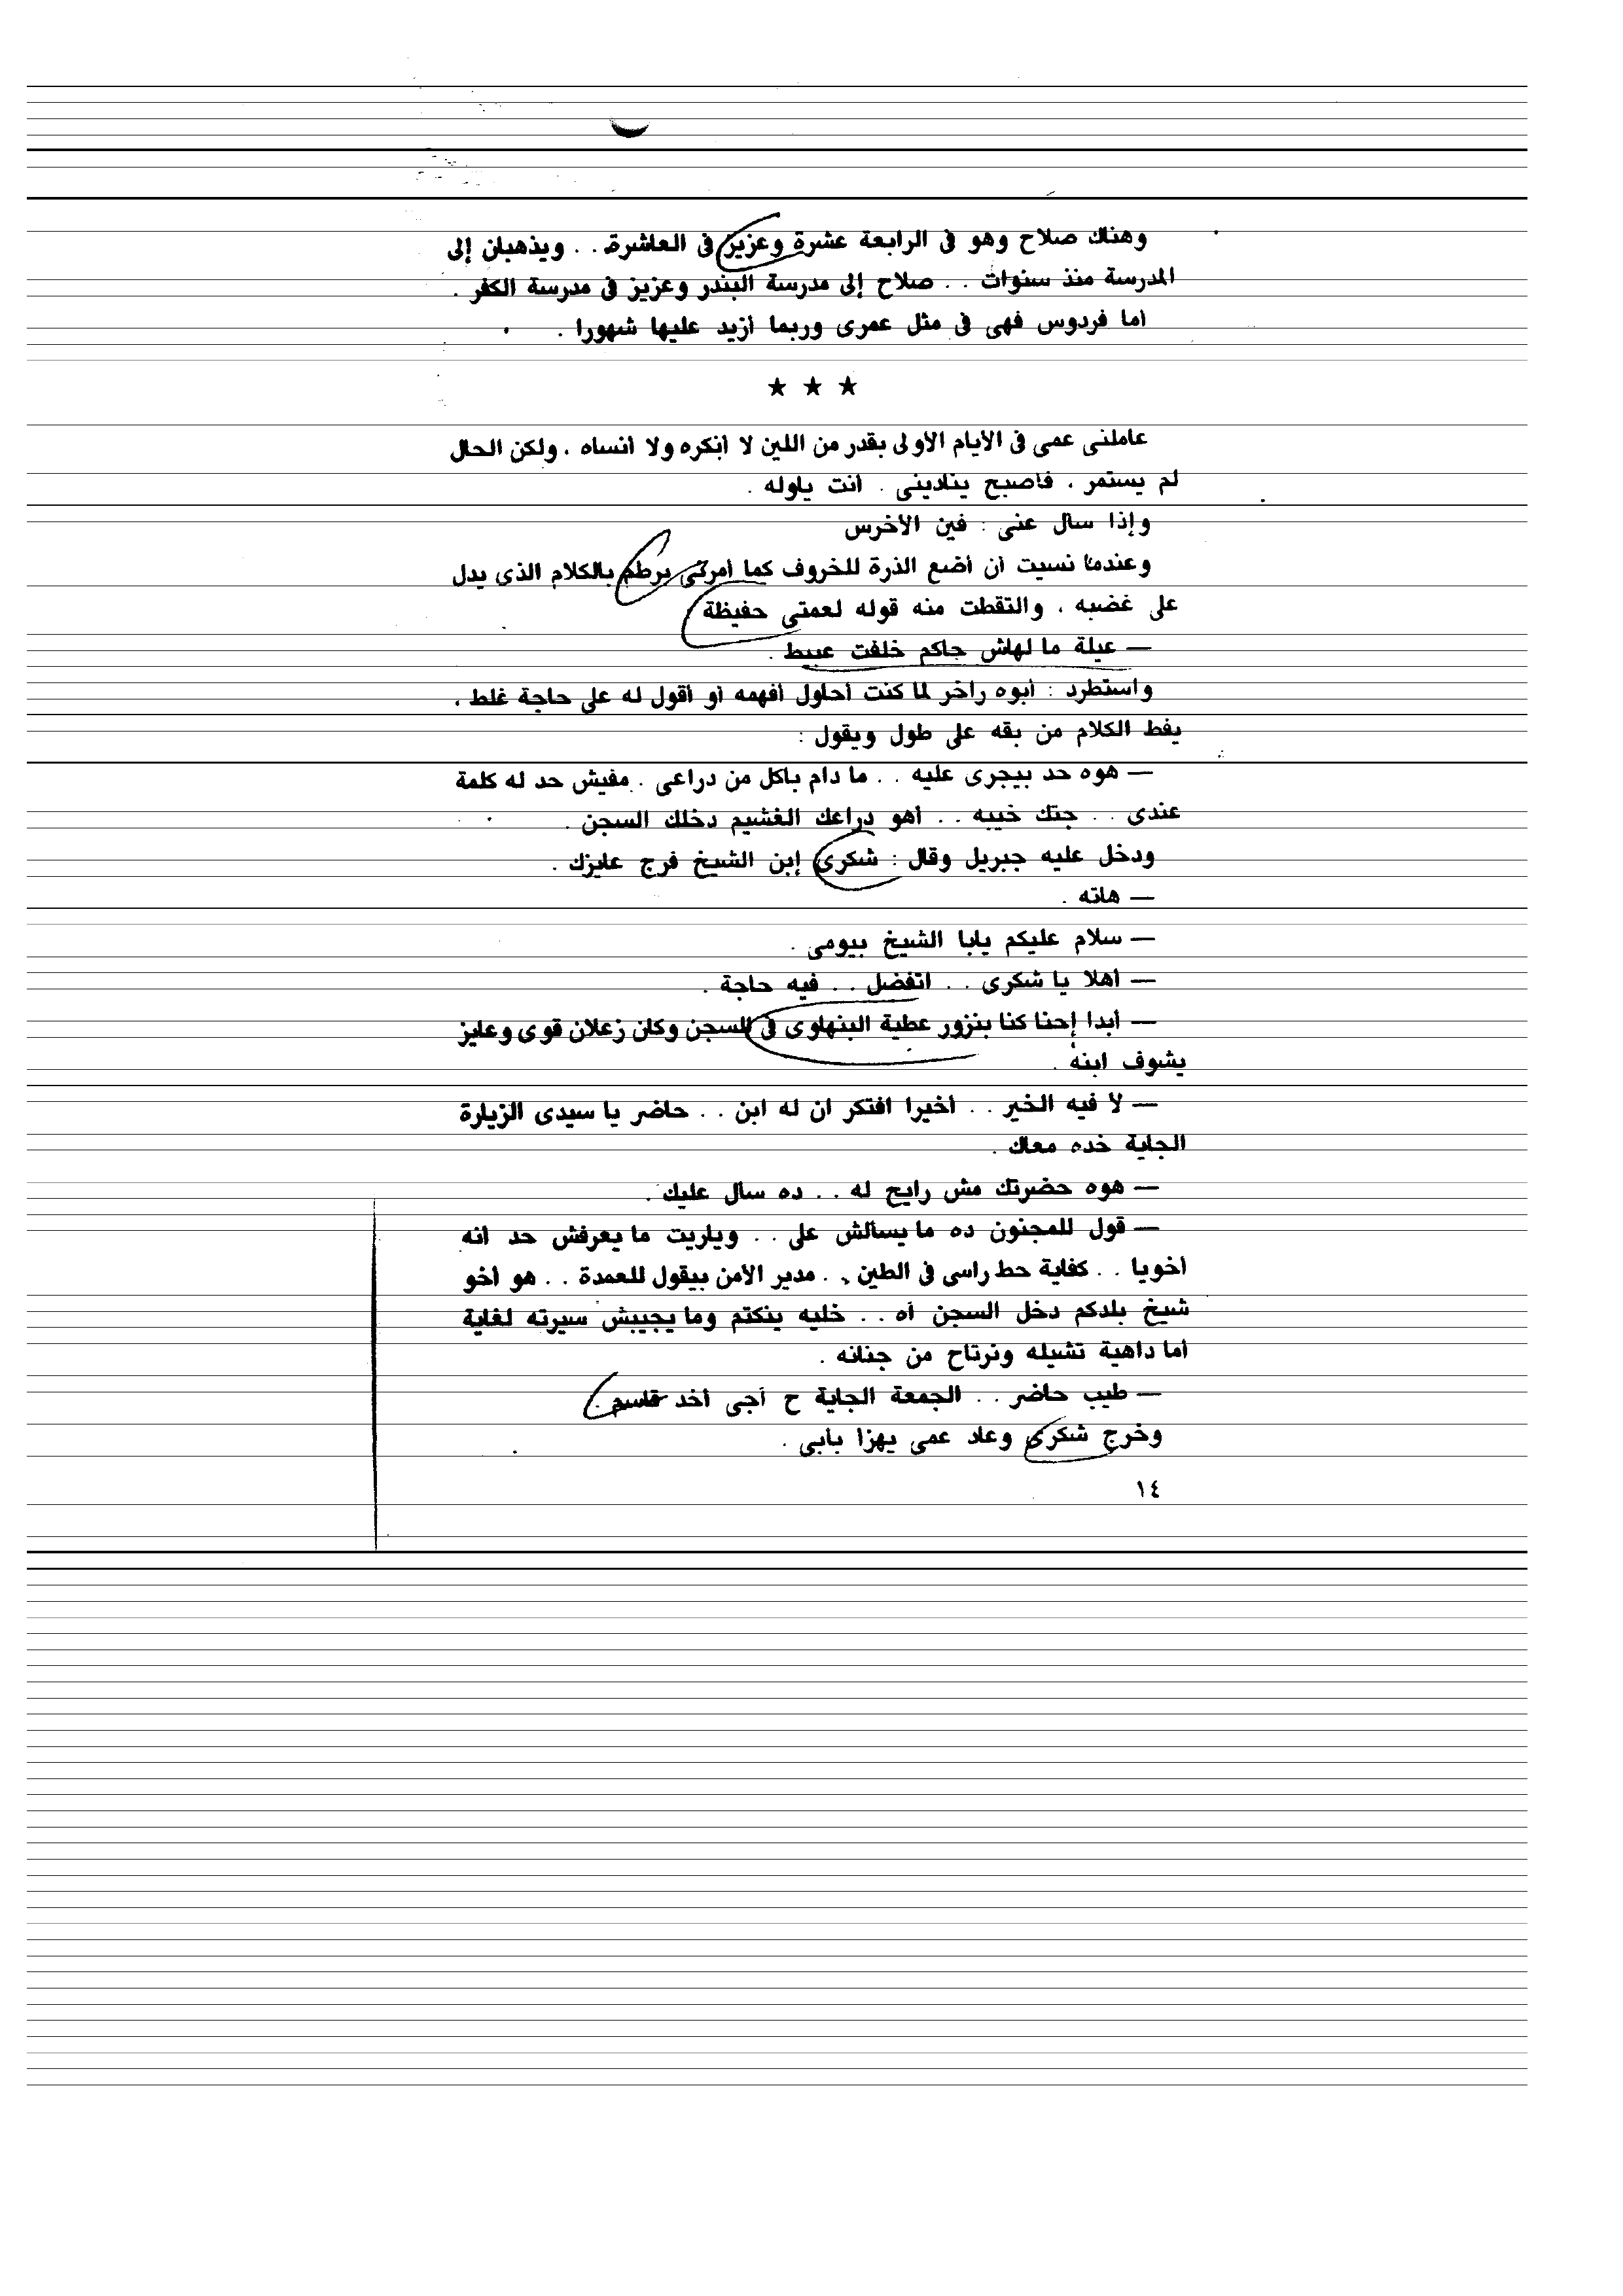 وهناك صلاح وهو فى الرابعة عشرة وعزيز فى العاشرة . . ويذهبان إلى
المدرسة منذ سنوات . . صلاح إلى مدرسة البندر وعزيز فى مدرسة الكفر .
أما فردوس فهى فى مثل عمرى وربما أزيد عليها شهورا .
★ ★ ★
عاملنى عمى فى الأيام الأولى بقدر من اللين لا أنكره ولا أنساه ، ولكن الحال
لم يستمر ، فأصبح ينادينى . أنت ياوله .
وإذا سأل عنى : فين الأخرس
وعندما نسيت أن أضع الذرة للخروف كما أمرنى برطم بالكلام الذى يدل
على غضبه ، والتقطت منه قوله لعمتى حفيظة
— عيلة ما لهاش جاكم خلفت عبيط .
واستطرد : أبوه راخر لما كنت أحاول أفهمه أو أقول له على حاجة غلط ،
يفط الكلام من بقه على طول ويقول :
— هوه حد بيجرى عليه . . ما دام باكل من دراعى . مفيش حد له كلمة
عندى . . جتك خيبه . . أهو دراعك الغشيم دخلك السجن .
ودخل عليه جبريل وقال : شكرى إبن الشيخ فرج عايزك .
— هاته .
— سلام عليكم يابا الشيخ بيومى .
— أهلا يا شكرى . . اتفضل . . فيه حاجة .
— أبدا إحنا كنا بنزور عطية البنهاوى فى السجن وكان زعلان قوى وعايز
يشوف ابنه .
— لا فيه الخير . . أخيرا افتكر ان له ابن . . حاضر يا سيدى الزيارة
الجاية خده معاك .
— هوه حضرتك مش رايح له . . ده سأل عليك .
— قول للمجنون ده ما يسألش على . . وياريت ما يعرفش حد أنه
أخويا . . كفاية حط راسى فى الطين . . مدير الأمن بيقول للعمدة . . هو أخو
شيخ بلدكم دخل السجن أه . . خليه ينكتم وما يجيبش سيرته لغاية
أما داهية تشيله ونرتاح من جنانه .
— طيب حاضر . . الجمعة الجاية ح أجى أخد قاسم .
وخرج شكرى وعاد عمى يهزأ بأبى .
١٤